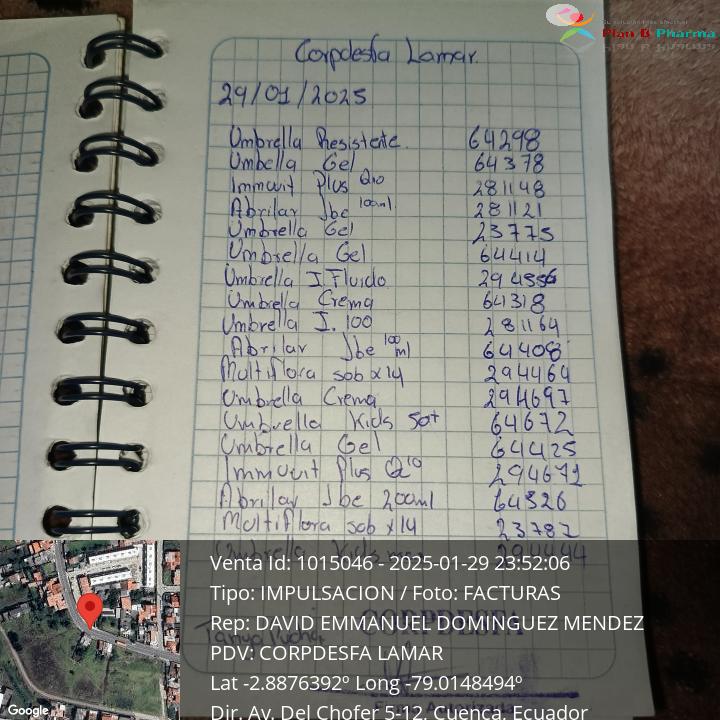 Plan B Pharma
Corpdesfa Lamar.
29/01/2025
Umbrella Resistente. 64298
Umbella Gel 64378
Immuvit Plus Q10 281148
Abrilar Jbe 100ml. 281121
Umbrella Gel 23775
Umbrella Gel 64414
Umbrella I. Fluido
Umbrella Crema 64318
Umbrella I. 100 281164
Abrilar Jbe 100 ml 64408
Multiflora sob x14 294464
Umbrella Crema 294697
Umbrella Kids 50+ 64672
Umbrella Gel 64425
Immuvit Plus Q10 294671
Abrilar Jbe 200ml 64326
Multiflora sob x14 23782
Umbrella Kids 294444
CORPDESFA
Venta Id: 1015046 - 2025-01-29 23:52:06
Tipo: IMPULSACION / Foto: FACTURAS
Rep: DAVID EMMANUEL DOMINGUEZ MENDEZ
PDV: CORPDESFA LAMAR
Lat -2.8876392º Long -79.0148494º
Dir. Av. Del Chofer 5-12, Cuenca, Ecuador
Google